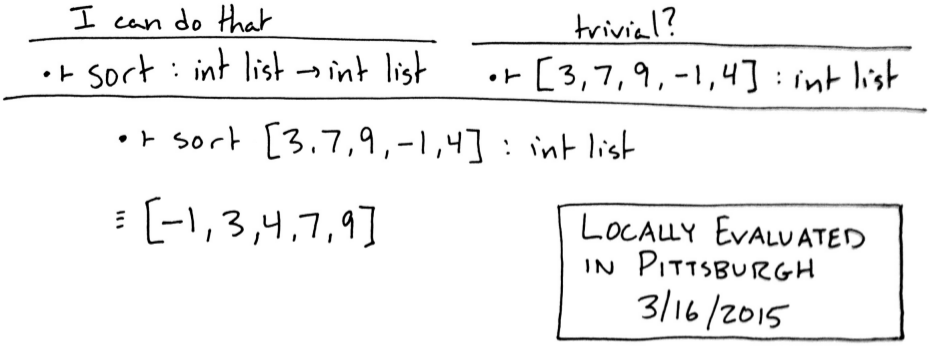 I can do that
trivial?
· ⊢ sort : int list → int list
· ⊢ [3, 7, 9, -1, 4] : int list
· ⊢ sort [3, 7, 9, -1, 4] : int list
≡ [-1, 3, 4, 7, 9]
LOCALLY EVALUATED
IN PITTSBURGH
3/16/2015